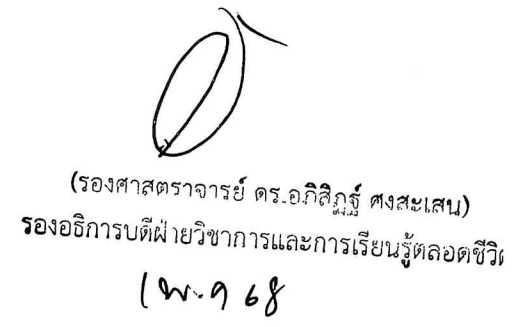 (รองศาสตราจารย์ ดร.อภิสิฏฐ์ ศงสะเสน)
รองอธิการบดีฝ่ายวิชาการและการเรียนรู้ตลอดชีวิ